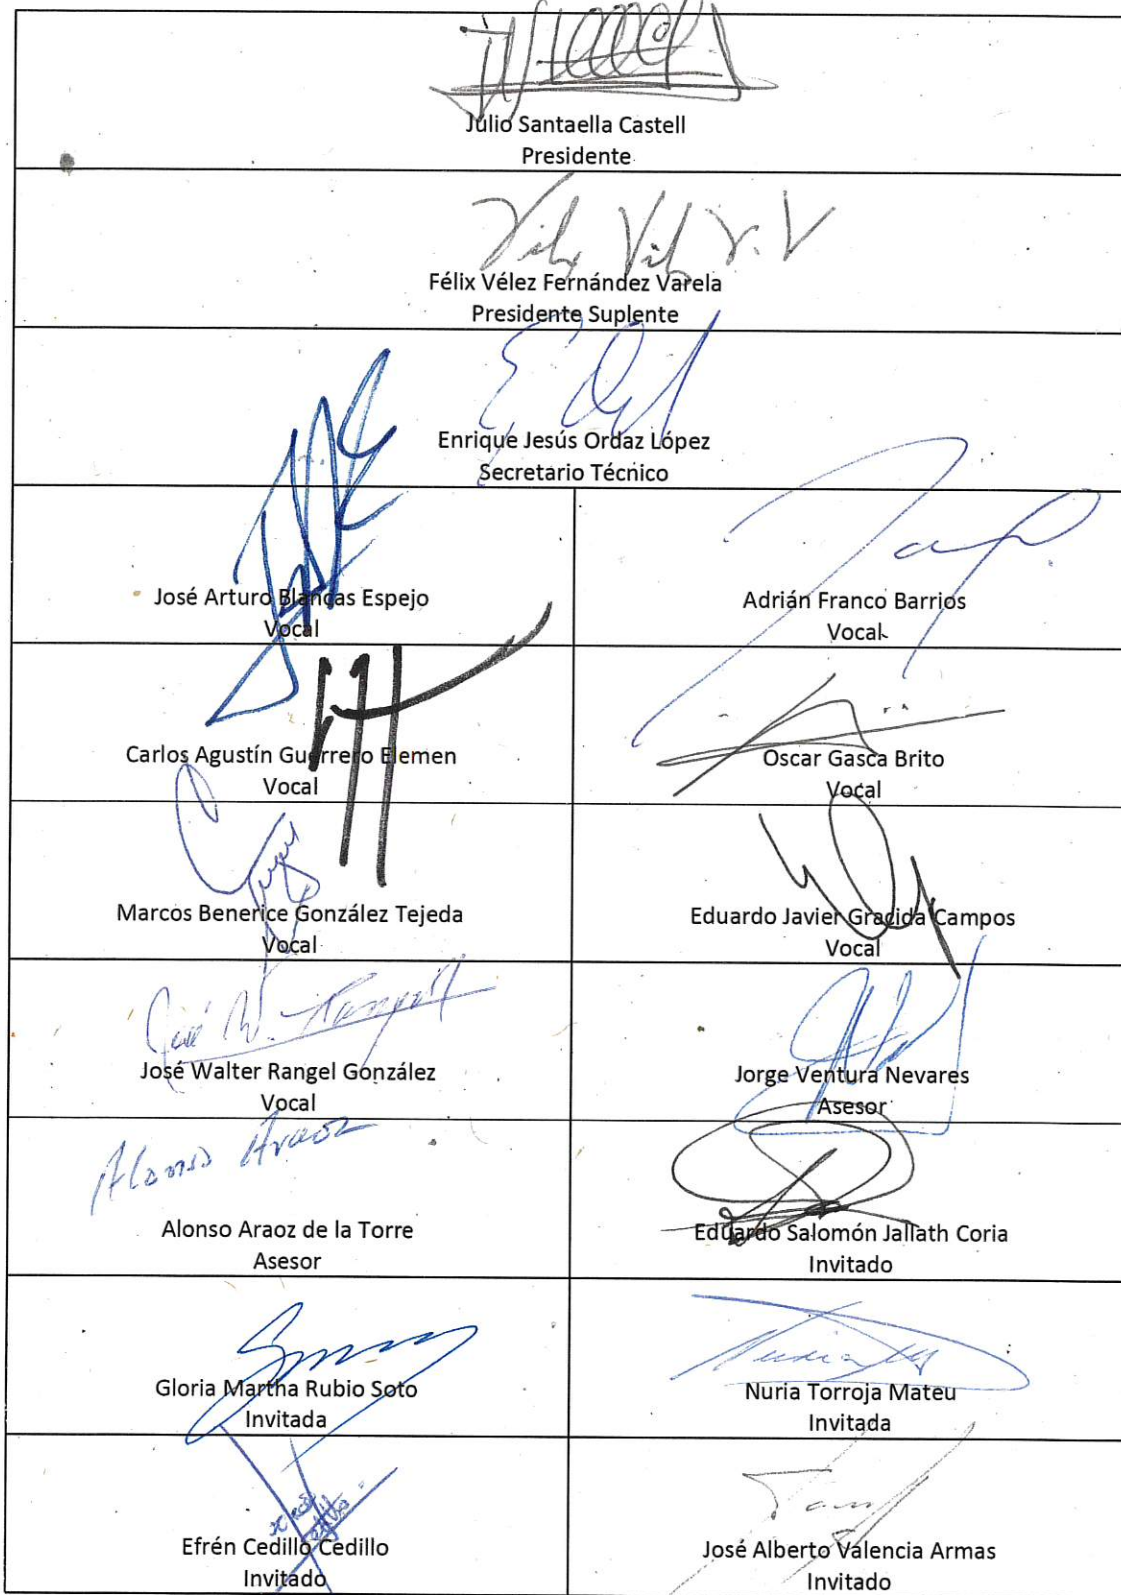 Julio Santaella Castell
Presidente
Félix Vélez Fernández Varela
Presidente Suplente
Enrique Jesús Ordaz López
Secretario Técnico
José Arturo Blancas Espejo
Vocal
Adrián Franco Barrios
Vocal
Carlos Agustín Guerrero Elemen
Vocal
Oscar Gasca Brito
Vocal
Marcos Benerice González Tejeda
Vocal
Eduardo Javier Gracida Campos
Vocal
José W. Rangel
José Walter Rangel González
Vocal
Jorge Ventura Nevares
Asesor
Alonso Araoz
Alonso Araoz de la Torre
Asesor
Eduardo Salomón Jallath Coria
Invitado
Gloria Martha Rubio Soto
Invitada
Nuria Torroja Mateu
Invitada
Efrén Cedillo Cedillo
Invitado
José Alberto Valencia Armas
Invitado